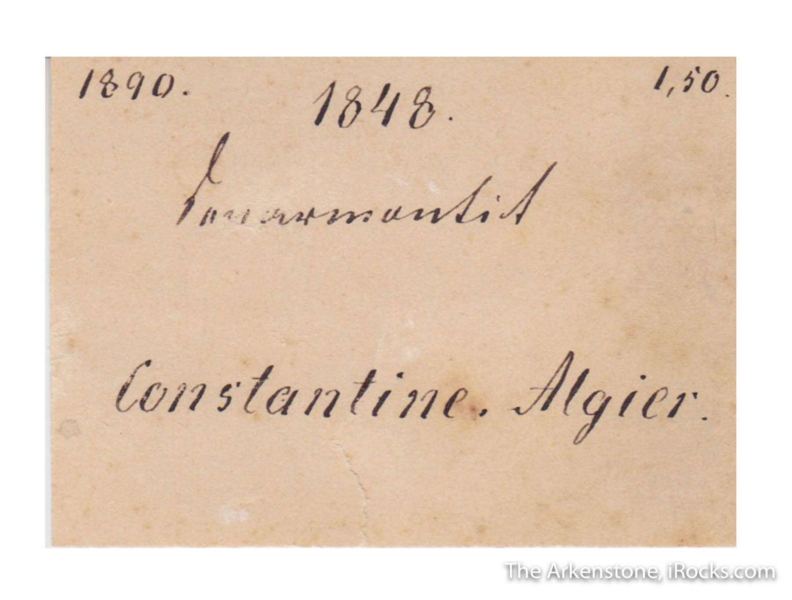 1890. 1848. 1,50.
Senarmontit
Constantine. Algier.
The Arkenstone, iRocks.com